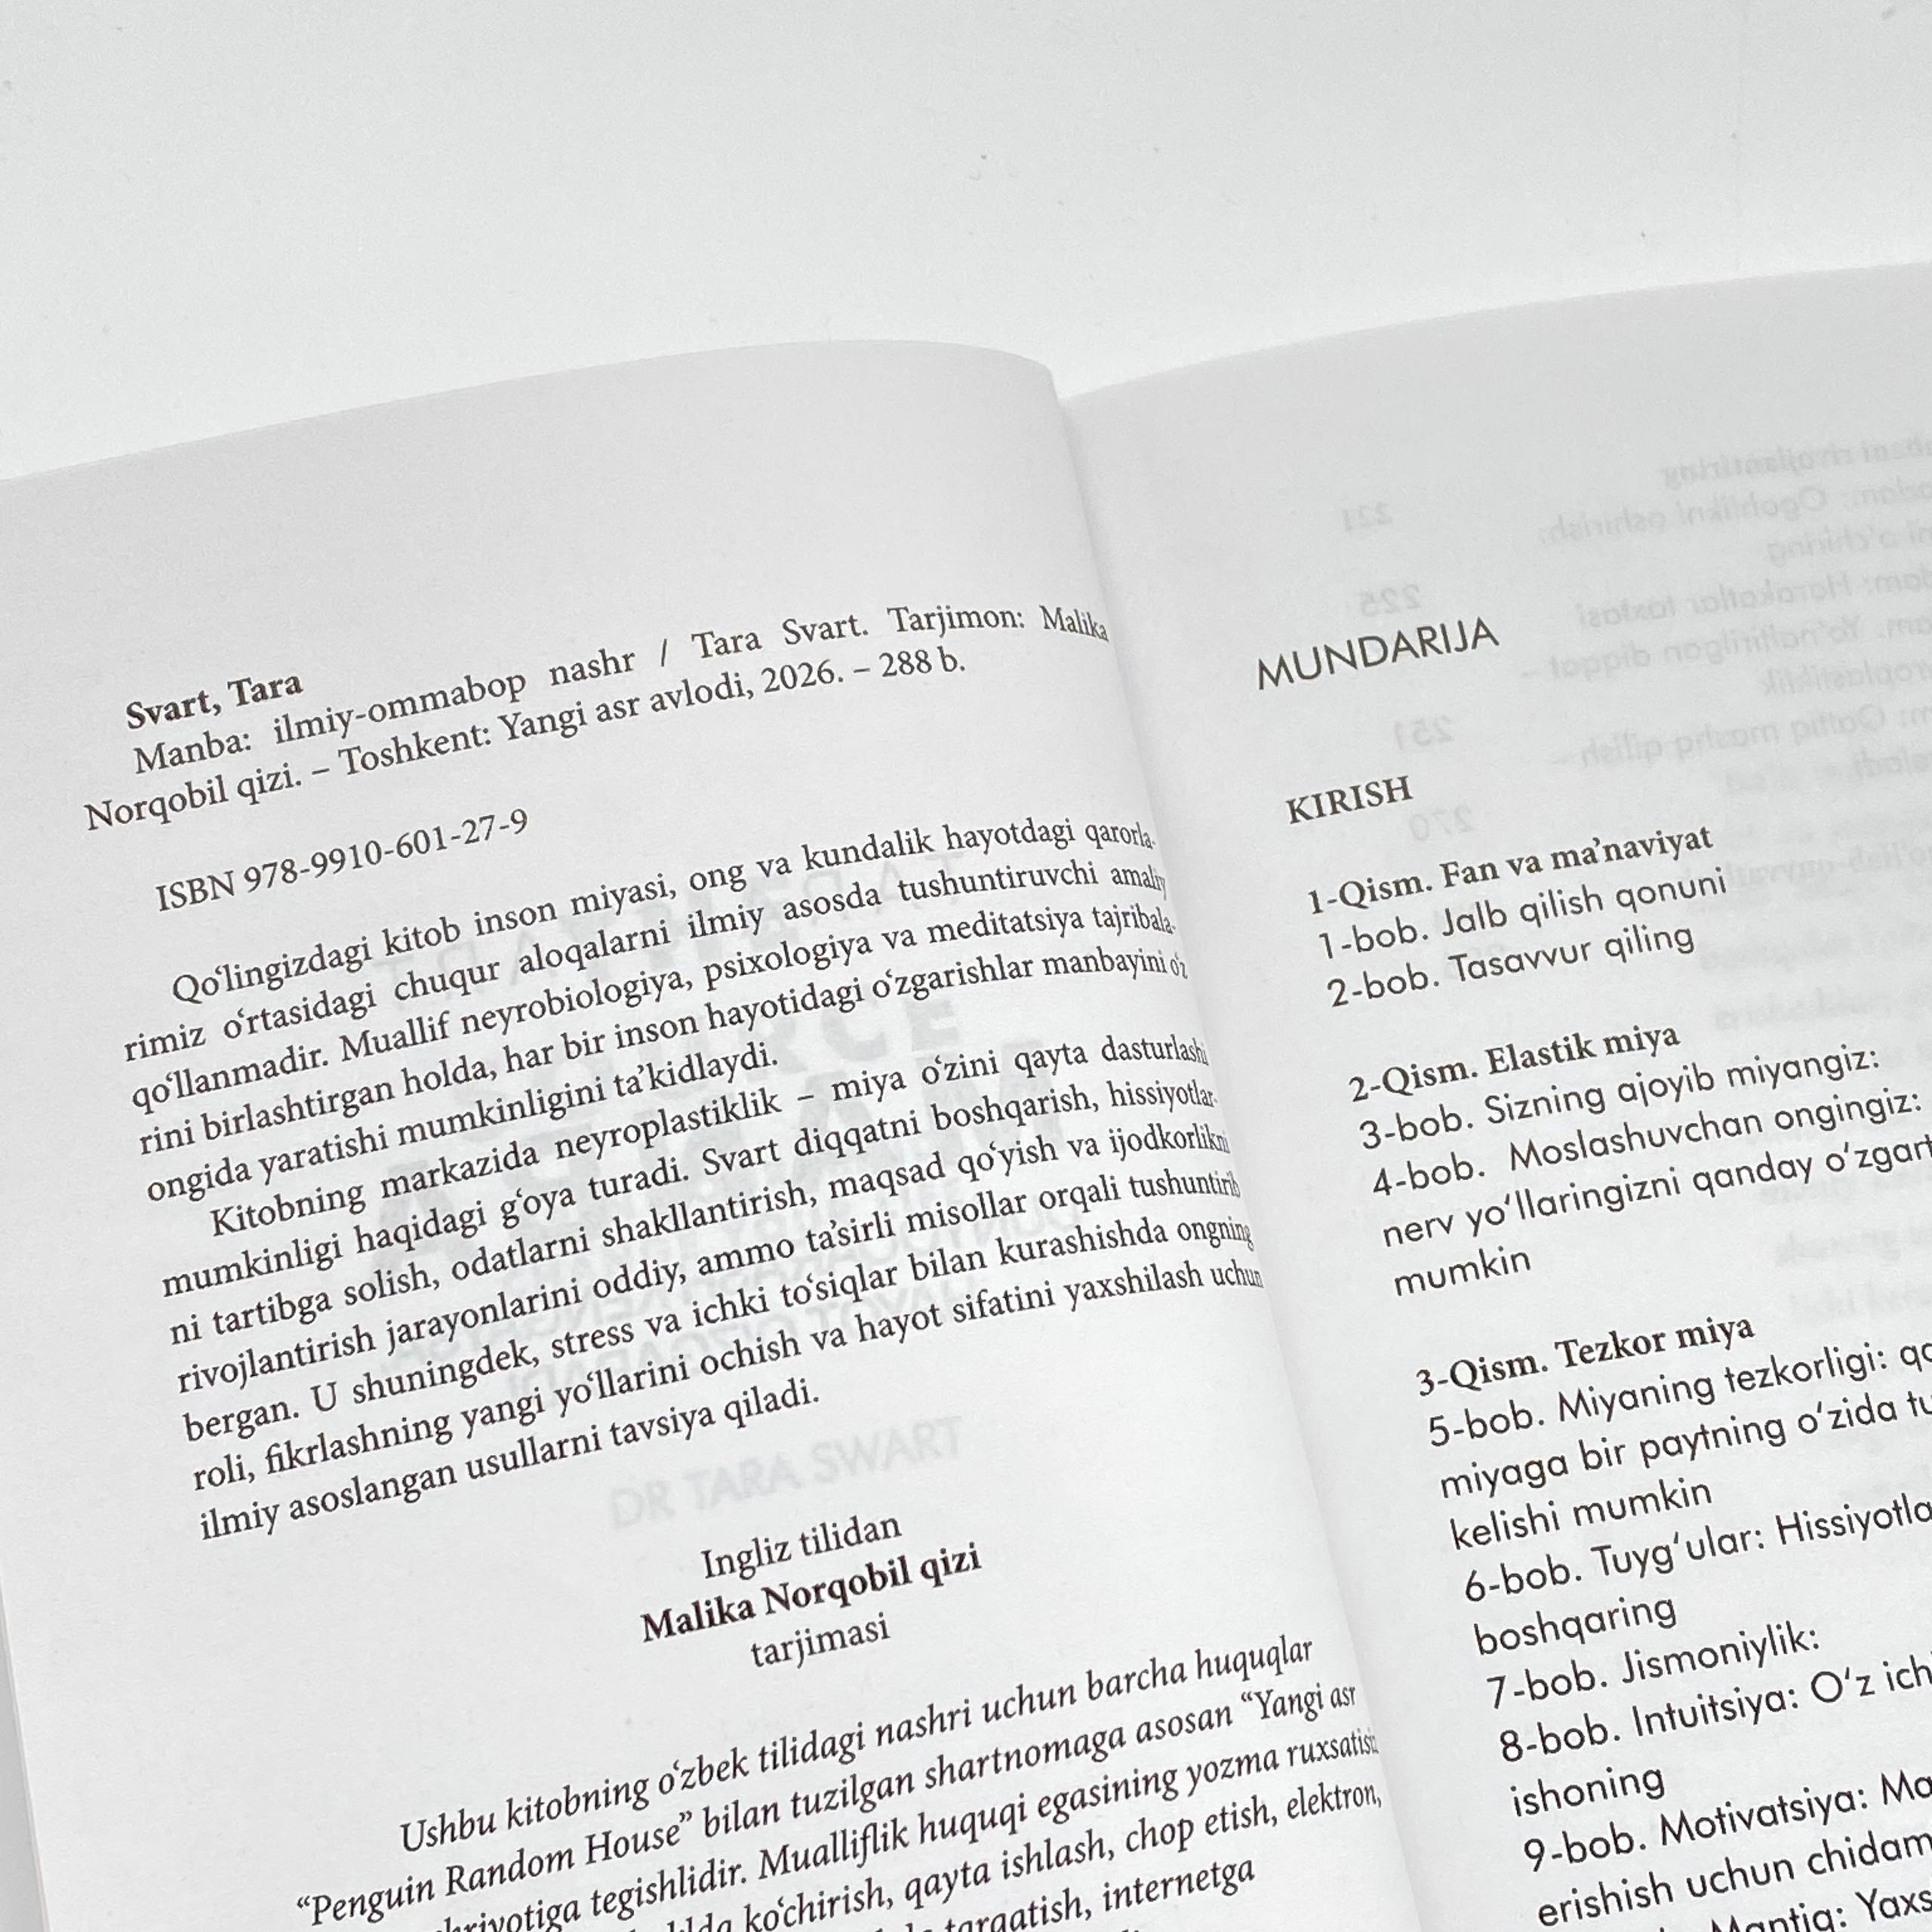 Svart, Tara
Manba: ilmiy-ommabop nashr / Tara Svart. Tarjimon: Malika
Norqobil qizi. – Toshkent: Yangi asr avlodi, 2026. – 288 b.
ISBN 978-9910-601-27-9
Qo‘lingizdagi kitob inson miyasi, ong va kundalik hayotdagi qarorla-
rimiz o‘rtasidagi chuqur aloqalarni ilmiy asosda tushuntiruvchi amaliy
qo‘llanmadir. Muallif neyrobiologiya, psixologiya va meditatsiya tajribala-
rini birlashtirgan holda, har bir inson hayotidagi o‘zgarishlar manbayini o‘z
ongida yaratishi mumkinligini ta’kidlaydi.
Kitobning markazida neyroplastiklik – miya o‘zini qayta dasturlashi
mumkinligi haqidagi g‘oya turadi. Svart diqqatni boshqarish, hissiyotlar-
ni tartibga solish, odatlarni shakllantirish, maqsad qo‘yish va ijodkorlikni
rivojlantirish jarayonlarini oddiy, ammo ta’sirli misollar orqali tushuntirib
bergan. U shuningdek, stress va ichki to‘siqlar bilan kurashishda ongning
roli, fikrlashning yangi yo‘llarini ochish va hayot sifatini yaxshilash uchun
ilmiy asoslangan usullarni tavsiya qiladi.
DR TARA SWART
Ingliz tilidan
Malika Norqobil qizi
tarjimasi
Ushbu kitobning o‘zbek tilidagi nashri uchun barcha huquqlar
“Penguin Random House” bilan tuzilgan shartnomaga asosan “Yangi asr
tegishlidir. Mualliflik huquqi egasining yozma ruxsatisiz
ko‘chirish, qayta ishlash, chop etish, elektron,
tarqatish, internetga
MUNDARIJA
KIRISH
1-Qism. Fan va ma’naviyat
1-bob. Jalb qilish qonuni
2-bob. Tasavvur qiling
2-Qism. Elastik miya
3-bob. Sizning ajoyib miyangiz:
4-bob. Moslashuvchan ongingiz:
nerv yo‘llaringizni qanday o‘zgart
mumkin
3-Qism. Tezkor miya
5-bob. Miyaning tezkorligi:
miyaga bir paytning o‘zida
kelishi mumkin
6-bob. Tuyg‘ular: Hissiyotla
boshqaring
7-bob. Jismoniylik:
8-bob. Intuitsiya: O‘z ich
ishoning
9-bob. Motivatsiya: Ma
erishish uchun chidam
Mantiq: Yaxs